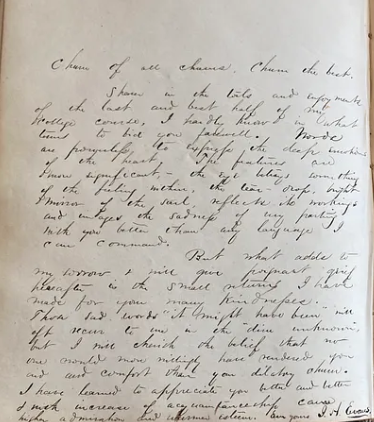 Chum of all chums, Chum the best.
Sharer in the toils and enjoyments
of the last and best half of my
College course, I hardly know in what
terms to bid you farewell. Words
are powerless to express the deep emotions
of the heart. The features are
more significant, - the eye betrays something
of the feeling within, the tear-drop, bright
mirror of the soul, reflects its workings
and images the sadness of my parting
with you better than any language I
can command.
But what adds to
my sorrow & will give poignant grief
hereafter is the small returns I have
made for your many kindnesses.
Those sad words "it might have been" will
oft recur to me in the "dim unknown"
but I will cherish the belief that no
one would more willingly have rendered you
aid and comfort than your old boy chum.
I have learned to appreciate you better and better
& with increase of acquaintanceship came
higher admiration and warmer esteem. Ever yours J. A. Evans